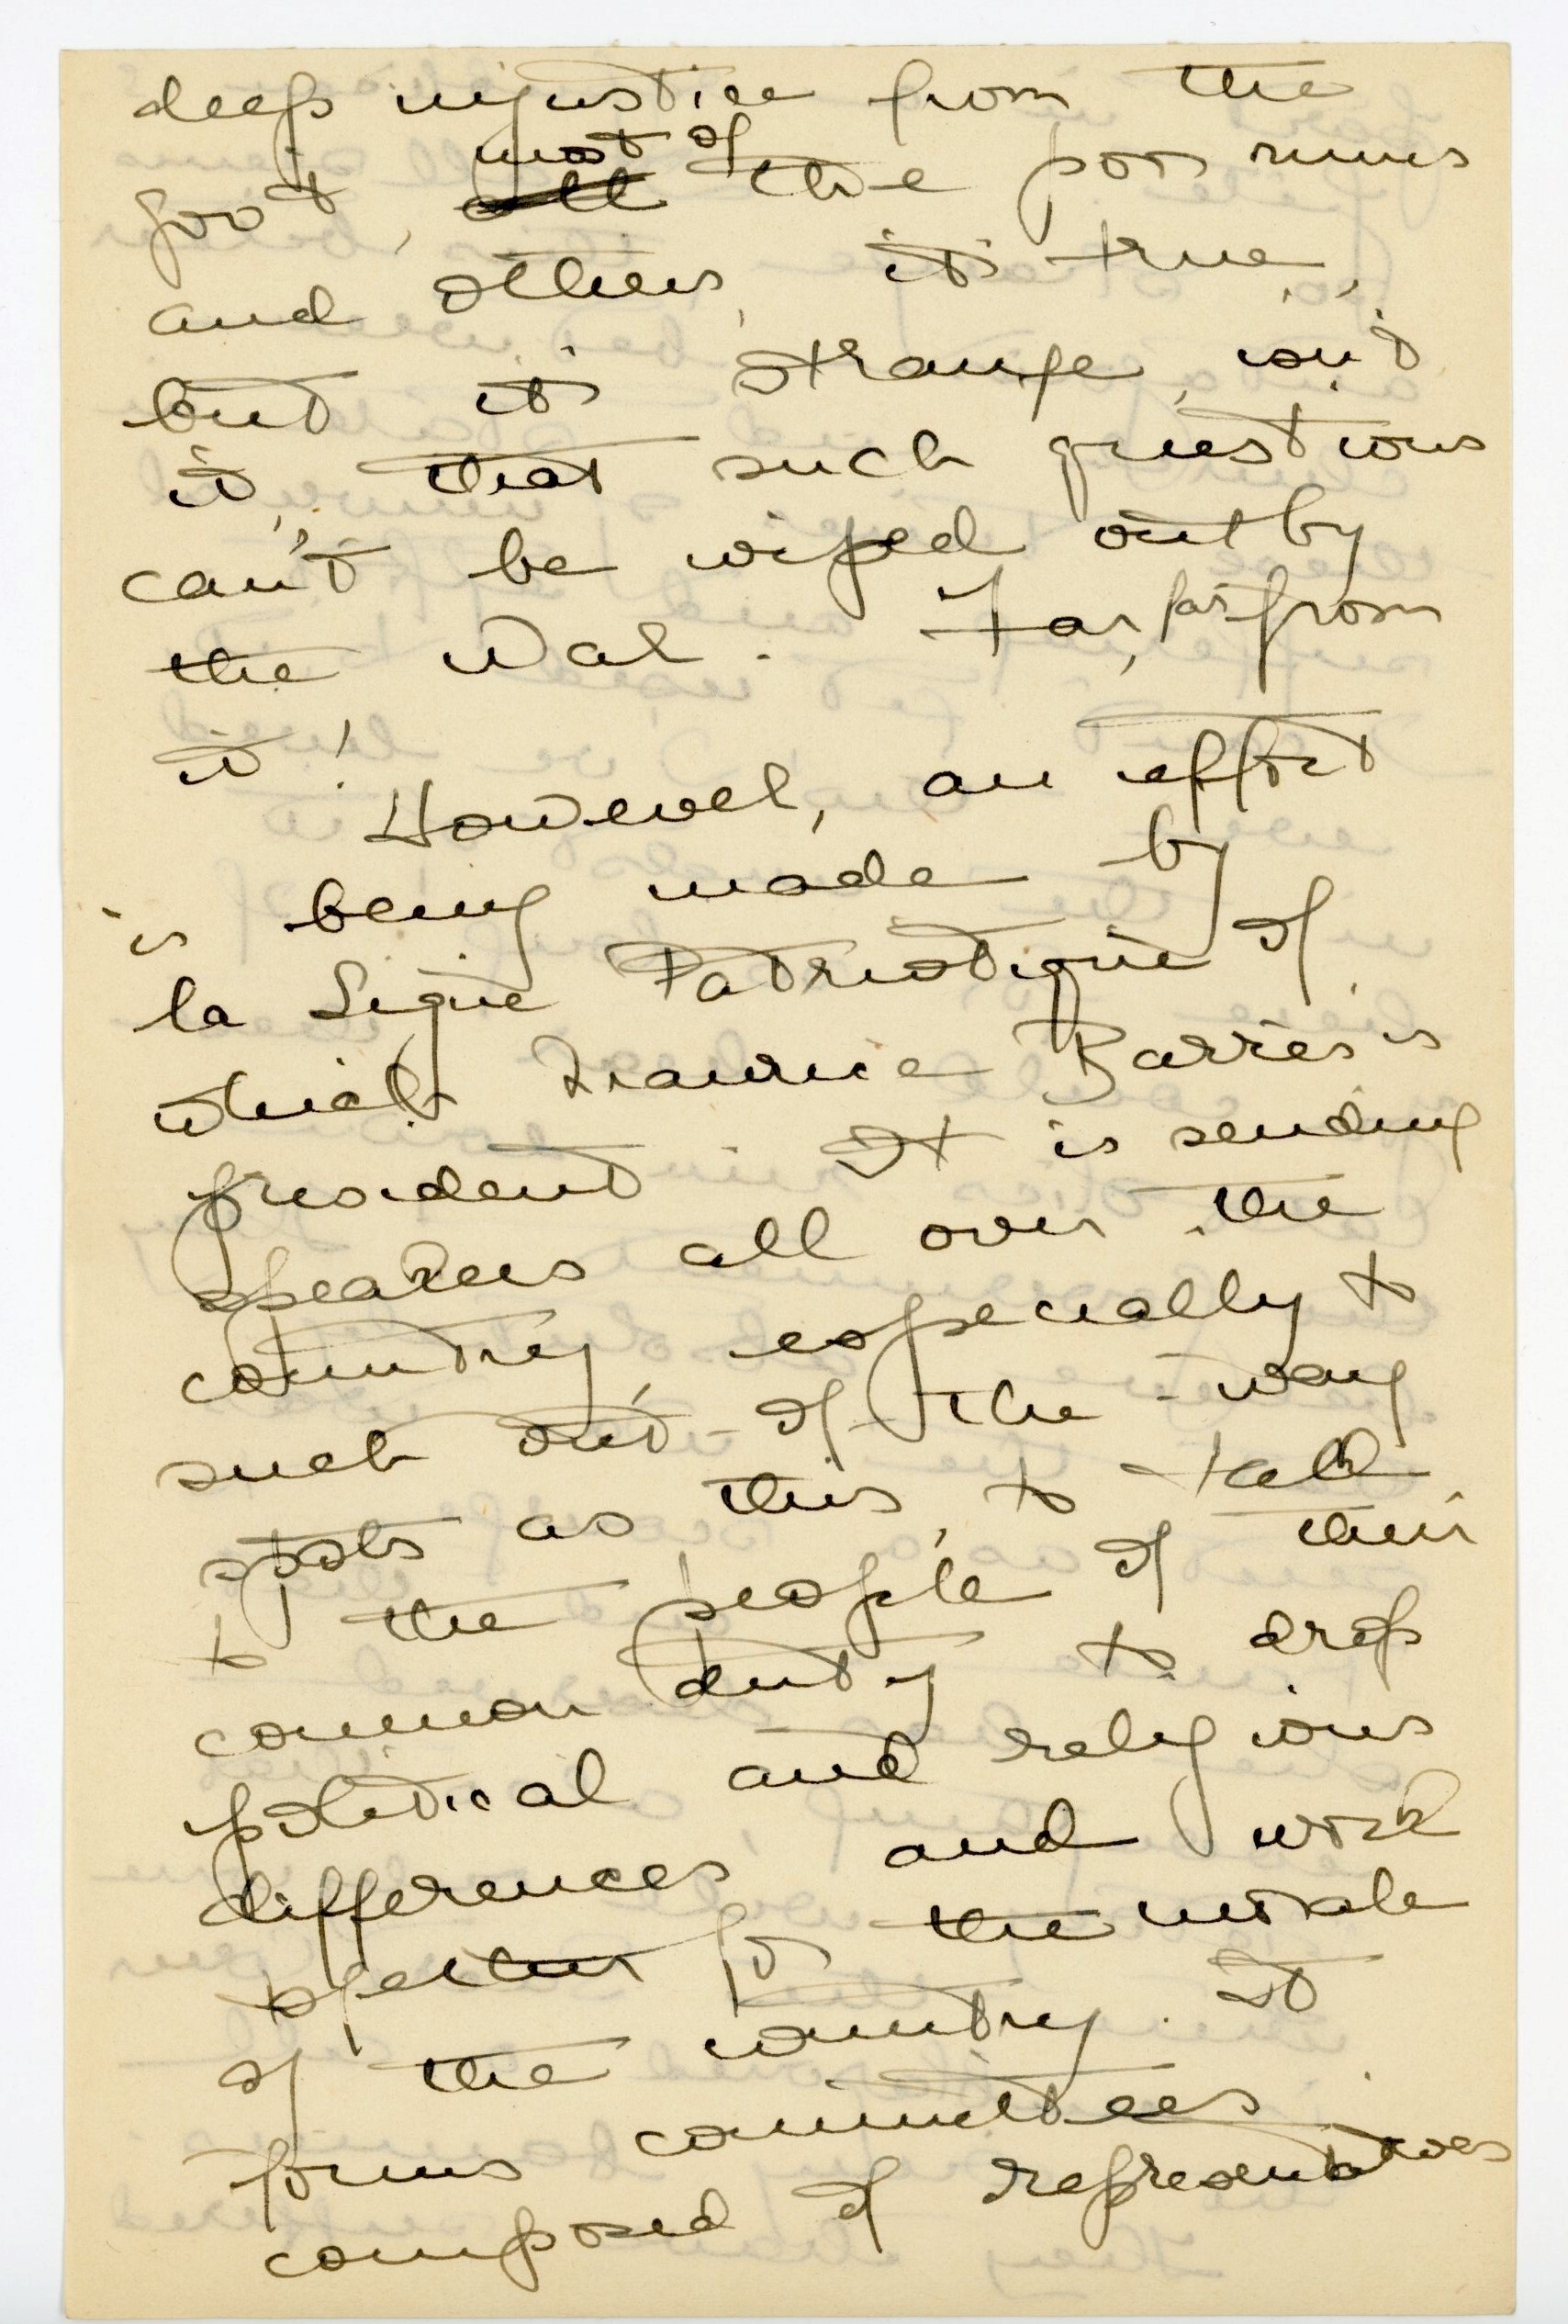 deep injustice from the
gov't, all most of the poor nuns
and others, it's true,
but it's strange, isn't
it, that such questions
can't be wiped out by
the War. Far, far from
it!
However, an effort
is being made by
la Ligue Patriotique of
which Maurice Barrès is
president. It is sending
speakers all over the
country, especially to
such out-of-the-way
spots as this, to talk
to the people of their
common duty to drop
political and religious
differences and work
together for the morale
of the country. It
forms committees
composed of representatives